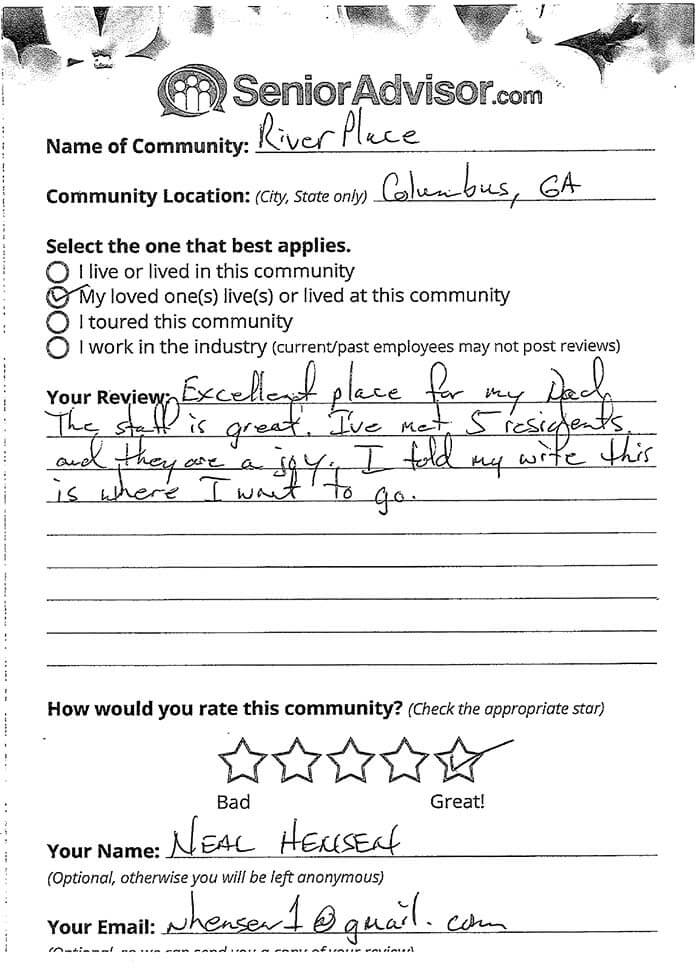 SeniorAdvisor.com
Name of Community: River Place
Community Location: (City, State only) Columbus, GA
Select the one that best applies.
I live or lived in this community
My loved one(s) live(s) or lived at this community
I toured this community
I work in the industry (current/past employees may not post reviews)
Your Review: Excellent place for my Dad.
The staff is great. I've met 5 residents
and they are a joy. I told my wife this
is where I want to go.
How would you rate this community? (Check the appropriate star)
Bad Great!
Your Name: NEAL HENSEN
(Optional, otherwise you will be left anonymous)
Your Email: nhensen1@gmail.com
(Optional, so we can send you a copy of your review)